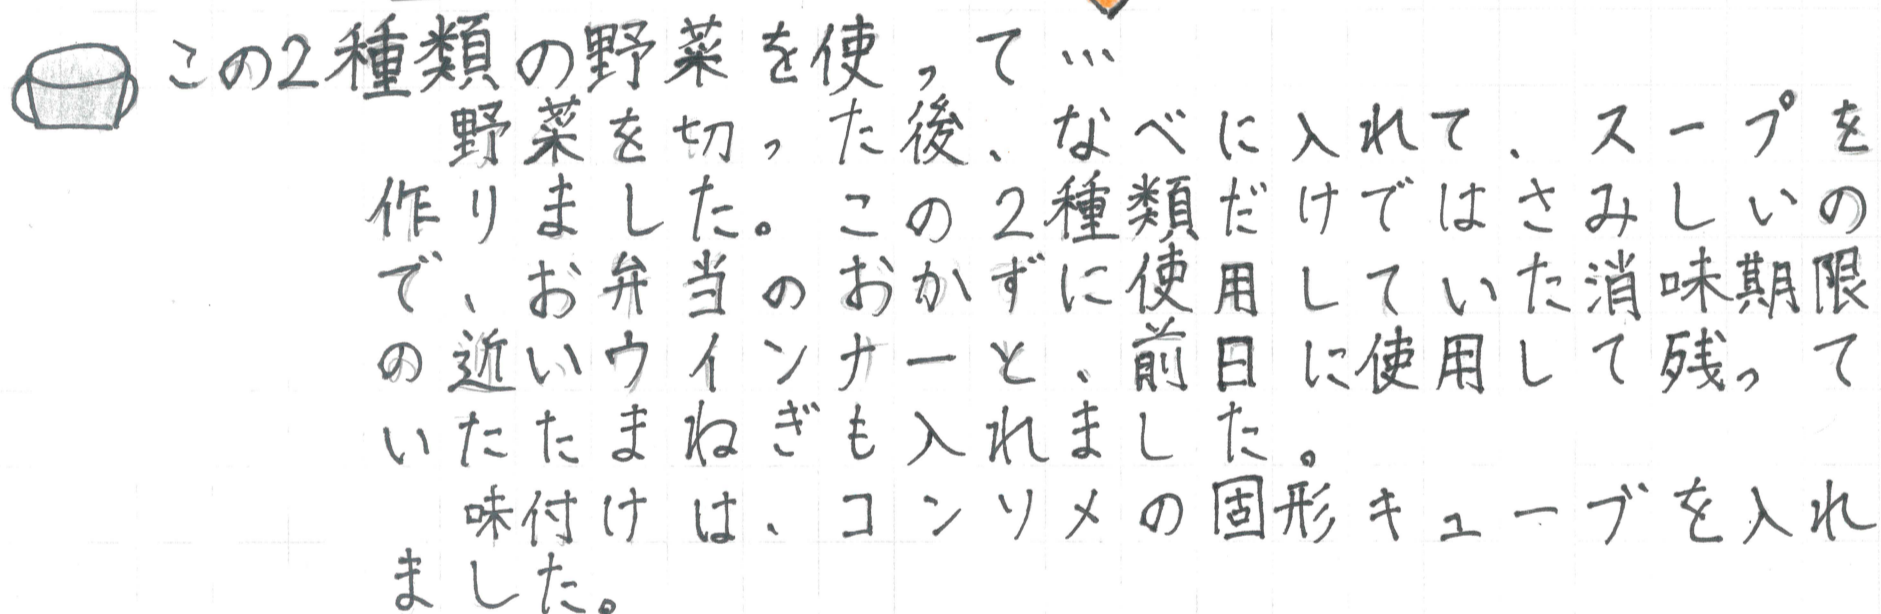 この2種類の野菜を使って…
野菜を切った後、なべに入れて、スープを
作りました。この2種類だけではさみしいの
で、お弁当のおかずに使用していた消味期限
の近いウインナーと、前日に使用して残って
いたたまねぎも入れました。
味付けは、コンソメの固形キューブを入れ
ました。